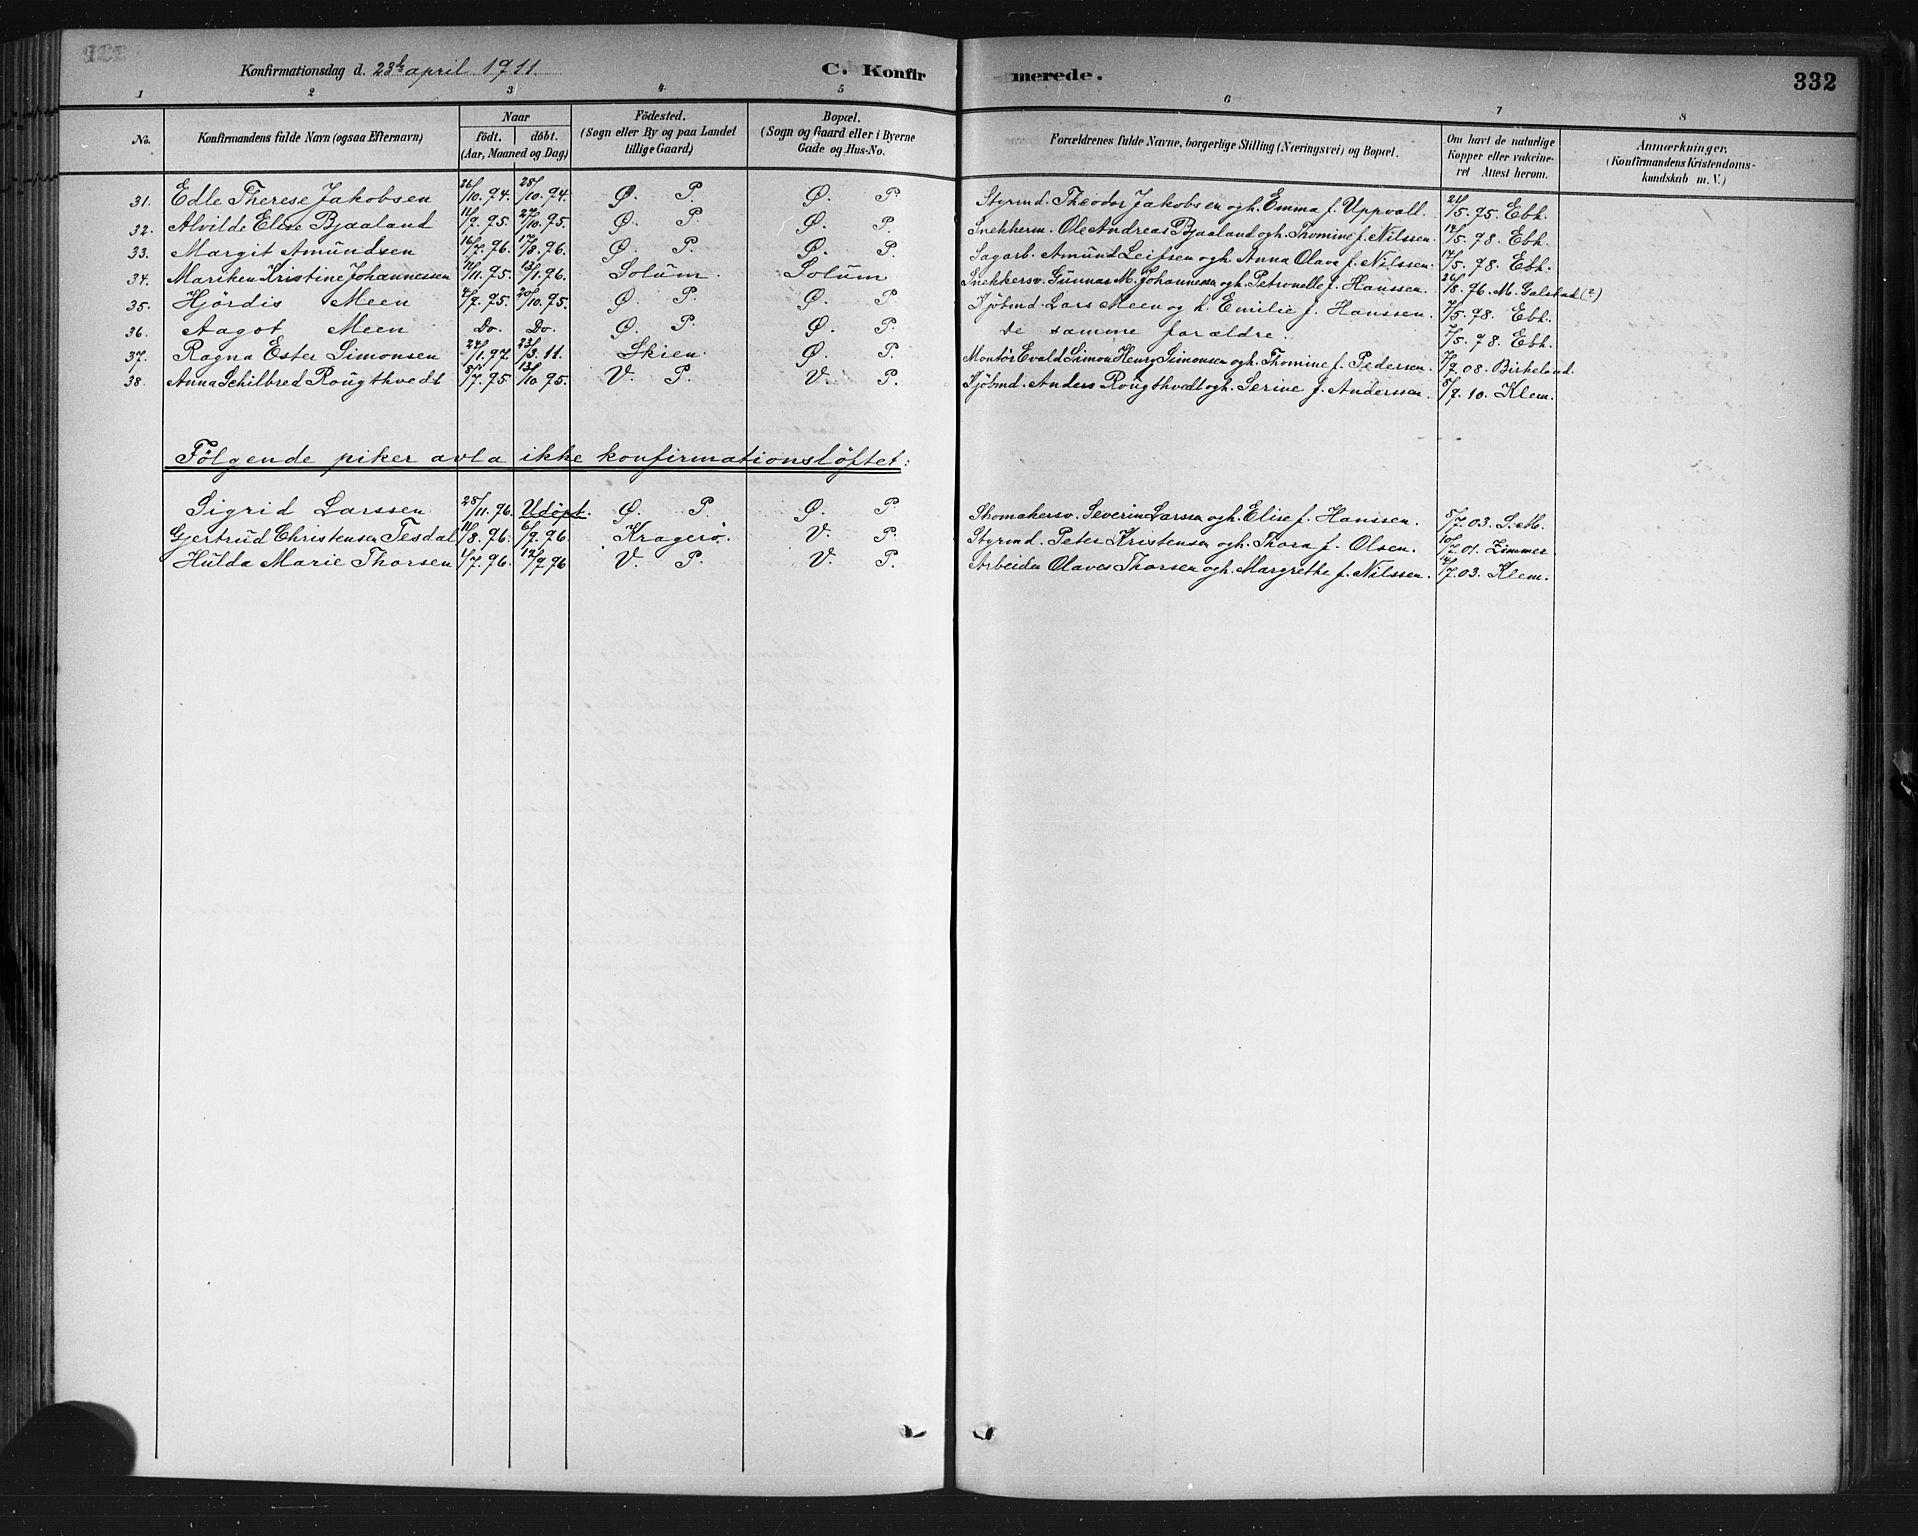 Konfirmationsdag d. 23de april 1911. C. Konfirmerede. 332
1 2 3 4 5 6 7 8
No. Konfirmandens fulde Navn (ogsaa Efternavn) Naar födt. döbt. (Aar, Maaned og Dag) Födested. (Sogn eller By og paa Landet tillige Gaard) Bopæl. (Sogn og Gaard eller i Byerne Gade og Hus-No. Forældrenes fulde Navne, borgerlige Stilling (Næringsvei) og Bopæl. Om havt de naturlige Kopper eller vakcineret Attest herom. Anmærkninger, (Konfirmandens Kristendomskundskab m. V.)
31. Edle Therese Jakobsen 26/10.94. 28/10.94. Ø. P. Ø. P. Styrmd. Theodor Jakobsen og h. Emma f. Uppvall. 21/5.95. Ebh.
32. Alvilde Elise Bjaaland 11/9.95. 27/10.95. Ø. P. Ø. P. Snekkerm. Ole Andreas Bjaaland og h. Thomine f. Nilssen. 14/5.98. Ebh.
33. Margit Amundsen 16/7.96. 17/8.96. Ø. P. Ø. P. Sagarb. Amund Leifsen og h. Anna Olava f. Nilssen. 14/5.98. Ebh.
34. Mariken Kristine Johannessen 11/11.95. 13/1.96. Solum. Solum Snekkersv. Gunnar M. Johannessen og h. Petronelle f. Hanssen. 26/8.96. M. Galstad (?)
35. Hjördis Meen 4/9.95. 20/10.95. Ø. P. Ø. P. Kjöbmd. Lars Meen og h. Emilie f. Hanssen. 7/5.98. Ebh.
36. Aagot Meen Do. Do. Ø. P. Ø. P. de samme forældre. 7/5.98. Ebh.
37. Ragna Ester Simonsen 24/1.97. 23/3.11. Skien. Ø. P. Montör Evald Simon Henry Simonsen og h. Thomine f. Pedersen. 7/9.08. Birkeland.
38. Anna Schilbred Rougthvedt 8/7.95. 13/10.95. V. P. V. P. Kjöbmd. Anders Rougthvedt og h. Serine f. Anderssen. 8/9.10. Klem.
Følgende piker avla ikke konfirmationsløftet:
Sigrid Larssen 28/11.96. Udöpt. Ø. P. Ø. P. Skomakersv. Severin Larssen og h. Elise f. Hanssen. 8/7.03. S. M.
Gjertrud Christensen Tesdal 11/8.96. 6/9.96. Kragerø. V. P. Styrmd. Peter Kristensen og h. Thora f. Olsen. 10/7.01. Zimmer.
Hulda Marie Thorsen 1/7.96. 12/9.96 V. P. V. P. Arbeider Olaves Thorsen og h. Margrethe f. Nilssen. 14/7.03. Klem.